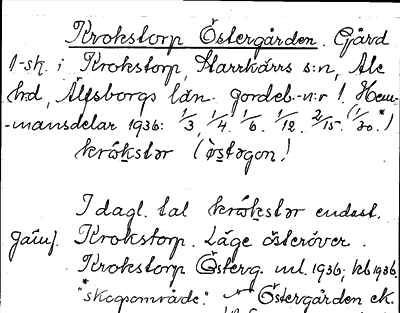 Krokstorp Östergården. Gård
1-sk. i Krokstorp, Starrkärrs s:n, Ale
hrd, Älfsborgs län. Jordeb.-n:r 1. Hem-
-mansdelar 1936: 1/3, 1/4, 1/6, 1/12, 2/15. (1/30.*)
krókstər (östəgon!
I dagl. tal krókstər endast.
Jämf. Krokstorp. Läge österöver.
Krokstorp Österg. ml. 1936; kb 1936.
"skogsområde." Östergården ek.